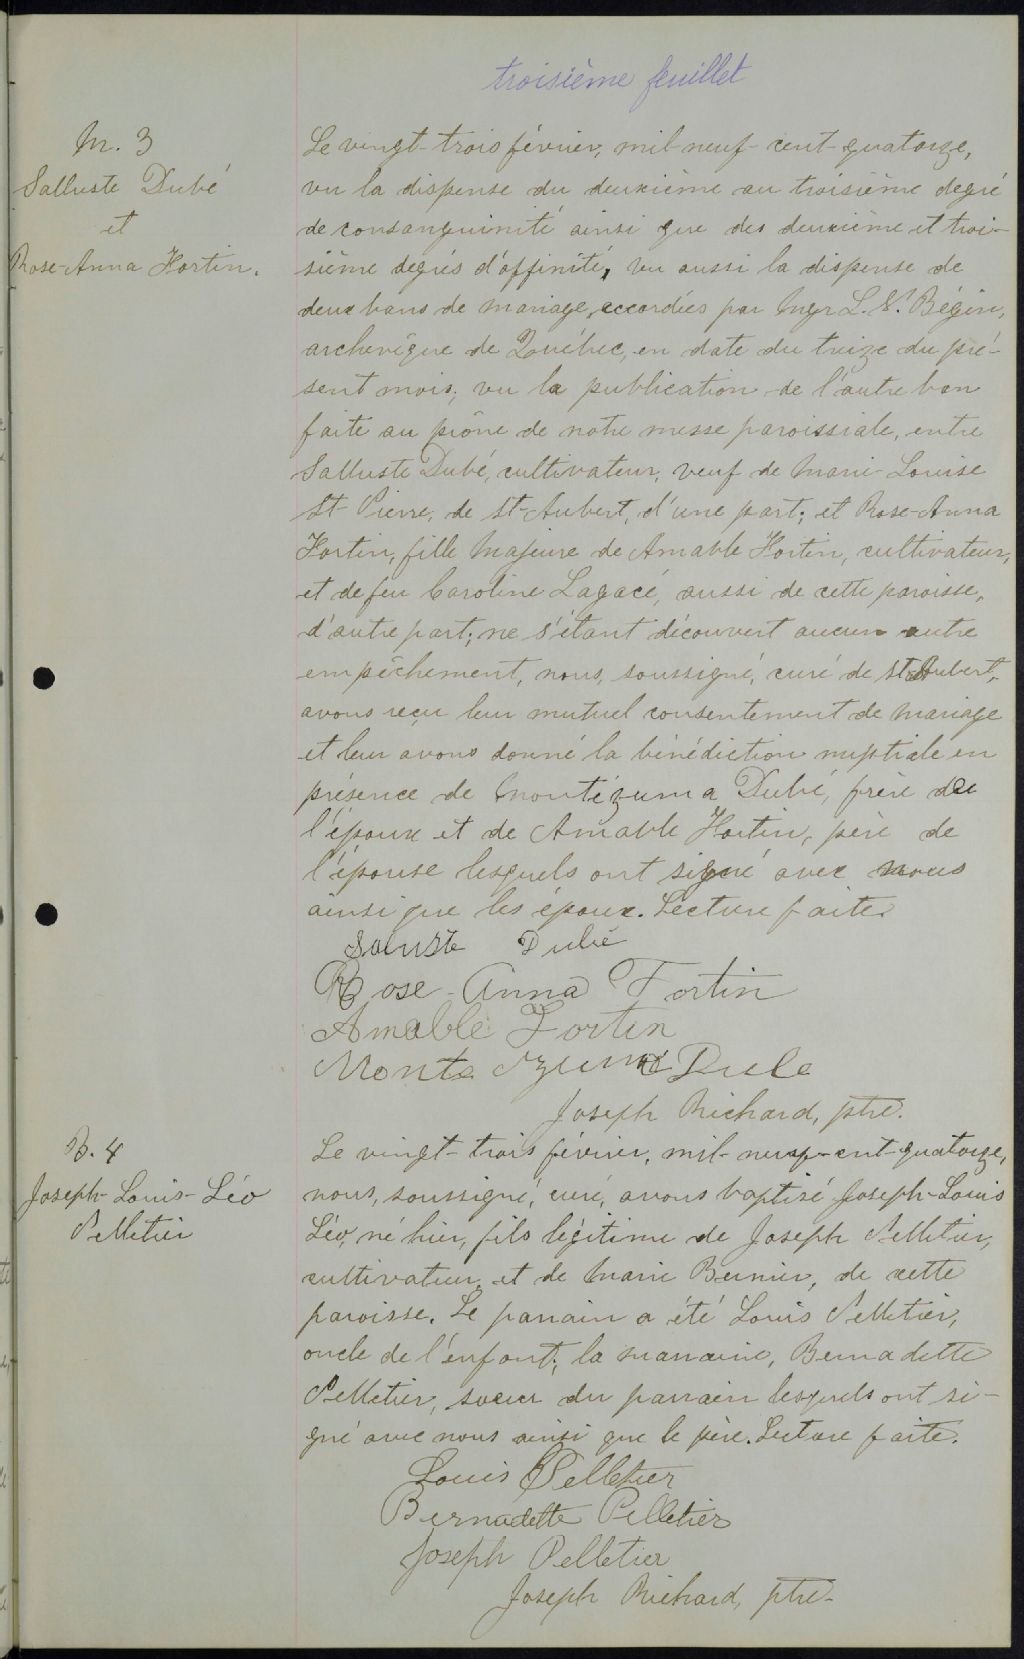 troisième feuillet
M. 3
Salluste Dubé
et
Rose-Anna Fortin.
Le vingt-trois février, mil-neuf-cent-quatorze,
vu la dispense du deuxième au troisième degré
de consanguinité ainsi que des deuxième et troi-
sième degrés d'affinité, vu aussi la dispense de
deux bans de mariage, accordées par Mgr L. N. Bégin,
archevêque de Québec, en date du treize du pré-
sent mois; vu la publication de l'autre ban
faite au prône de notre messe paroissiale, entre
Salluste Dubé, cultivateur, veuf de Marie-Louise
St-Pierre, de St-Aubert, d'une part; et Rose-Anna
Fortin, fille majeure de Amable Fortin, cultivateur,
et de feu Caroline Lagacé, aussi de cette paroisse,
d'autre part; ne s'étant découvert aucun autre
empêchement, nous, soussigné, curé de St-Aubert,
avons reçu leur mutuel consentement de mariage
et leur avons donné la bénédiction nuptiale en
présence de Montézuma Dubé, frère de
l'époux et de Amable Fortin, père de
l'épouse lesquels ont signé avec nous
ainsi que les époux. Lecture faite.
Saluste Dubé
Rose-Anna Fortin
Amable Fortin
Montezuma Dube
Joseph Richard, ptre.
B. 4
Joseph-Louis-Léo
Pelletier
Le vingt-trois février, mil-neuf-cent-quatorze,
nous, soussigné, curé, avons baptisé Joseph-Louis
Léo, né hier, fils légitime de Joseph Pelletier,
cultivateur, et de Marie Bernier, de cette
paroisse. Le parrain a été Louis Pelletier,
oncle de l'enfant; la marraine, Bernadette
Pelletier, soeur du parrain lesquels ont si-
gné avec nous ainsi que le père. Lecture faite.
Louis Pelletier
Bernadette Pelletier
Joseph Pelletier
Joseph Richard, ptre.